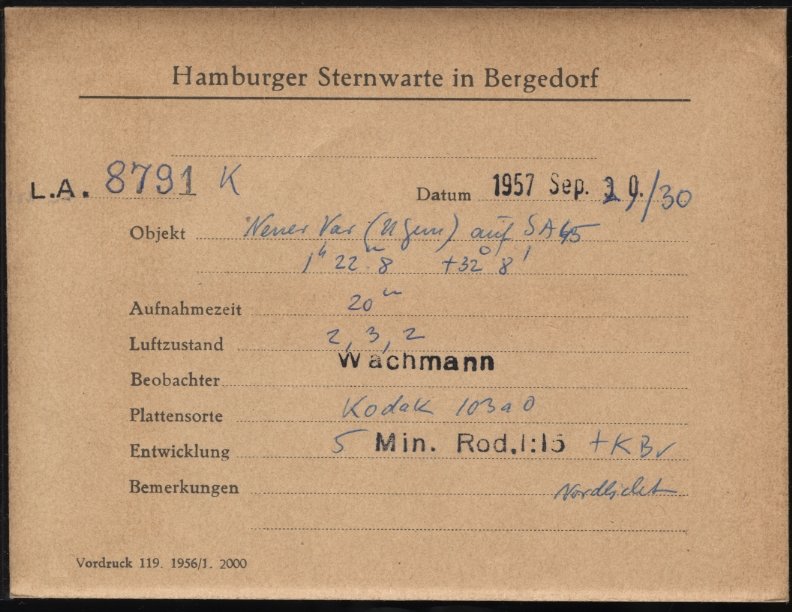 Hamburger Sternwarte in Bergedorf
L.A. 8791 K
Datum 1957 Sep. 29/30
Objekt Neuer Var (U Gem) auf SA45
1h 22m 8 +32° 8'
Aufnahmezeit 20m
Luftzustand 2, 3, 2
Beobachter Wachmann
Plattensorte Kodak 103a0
Entwicklung 5 Min. Rod. 1:15 + KBr
Bemerkungen Nordlicht
Vordruck 119. 1956/1. 2000